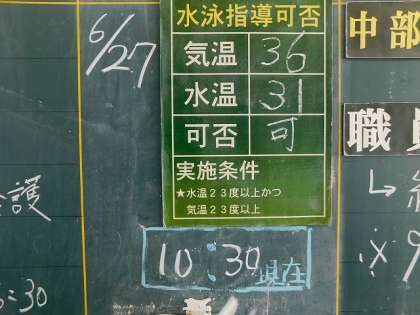 6/27
水泳指導可否
気温 36
水温 31
可否 可
実施条件
★水温23度以上かつ
気温23度以上
10:30現在
護
:30
中部
職員
※9